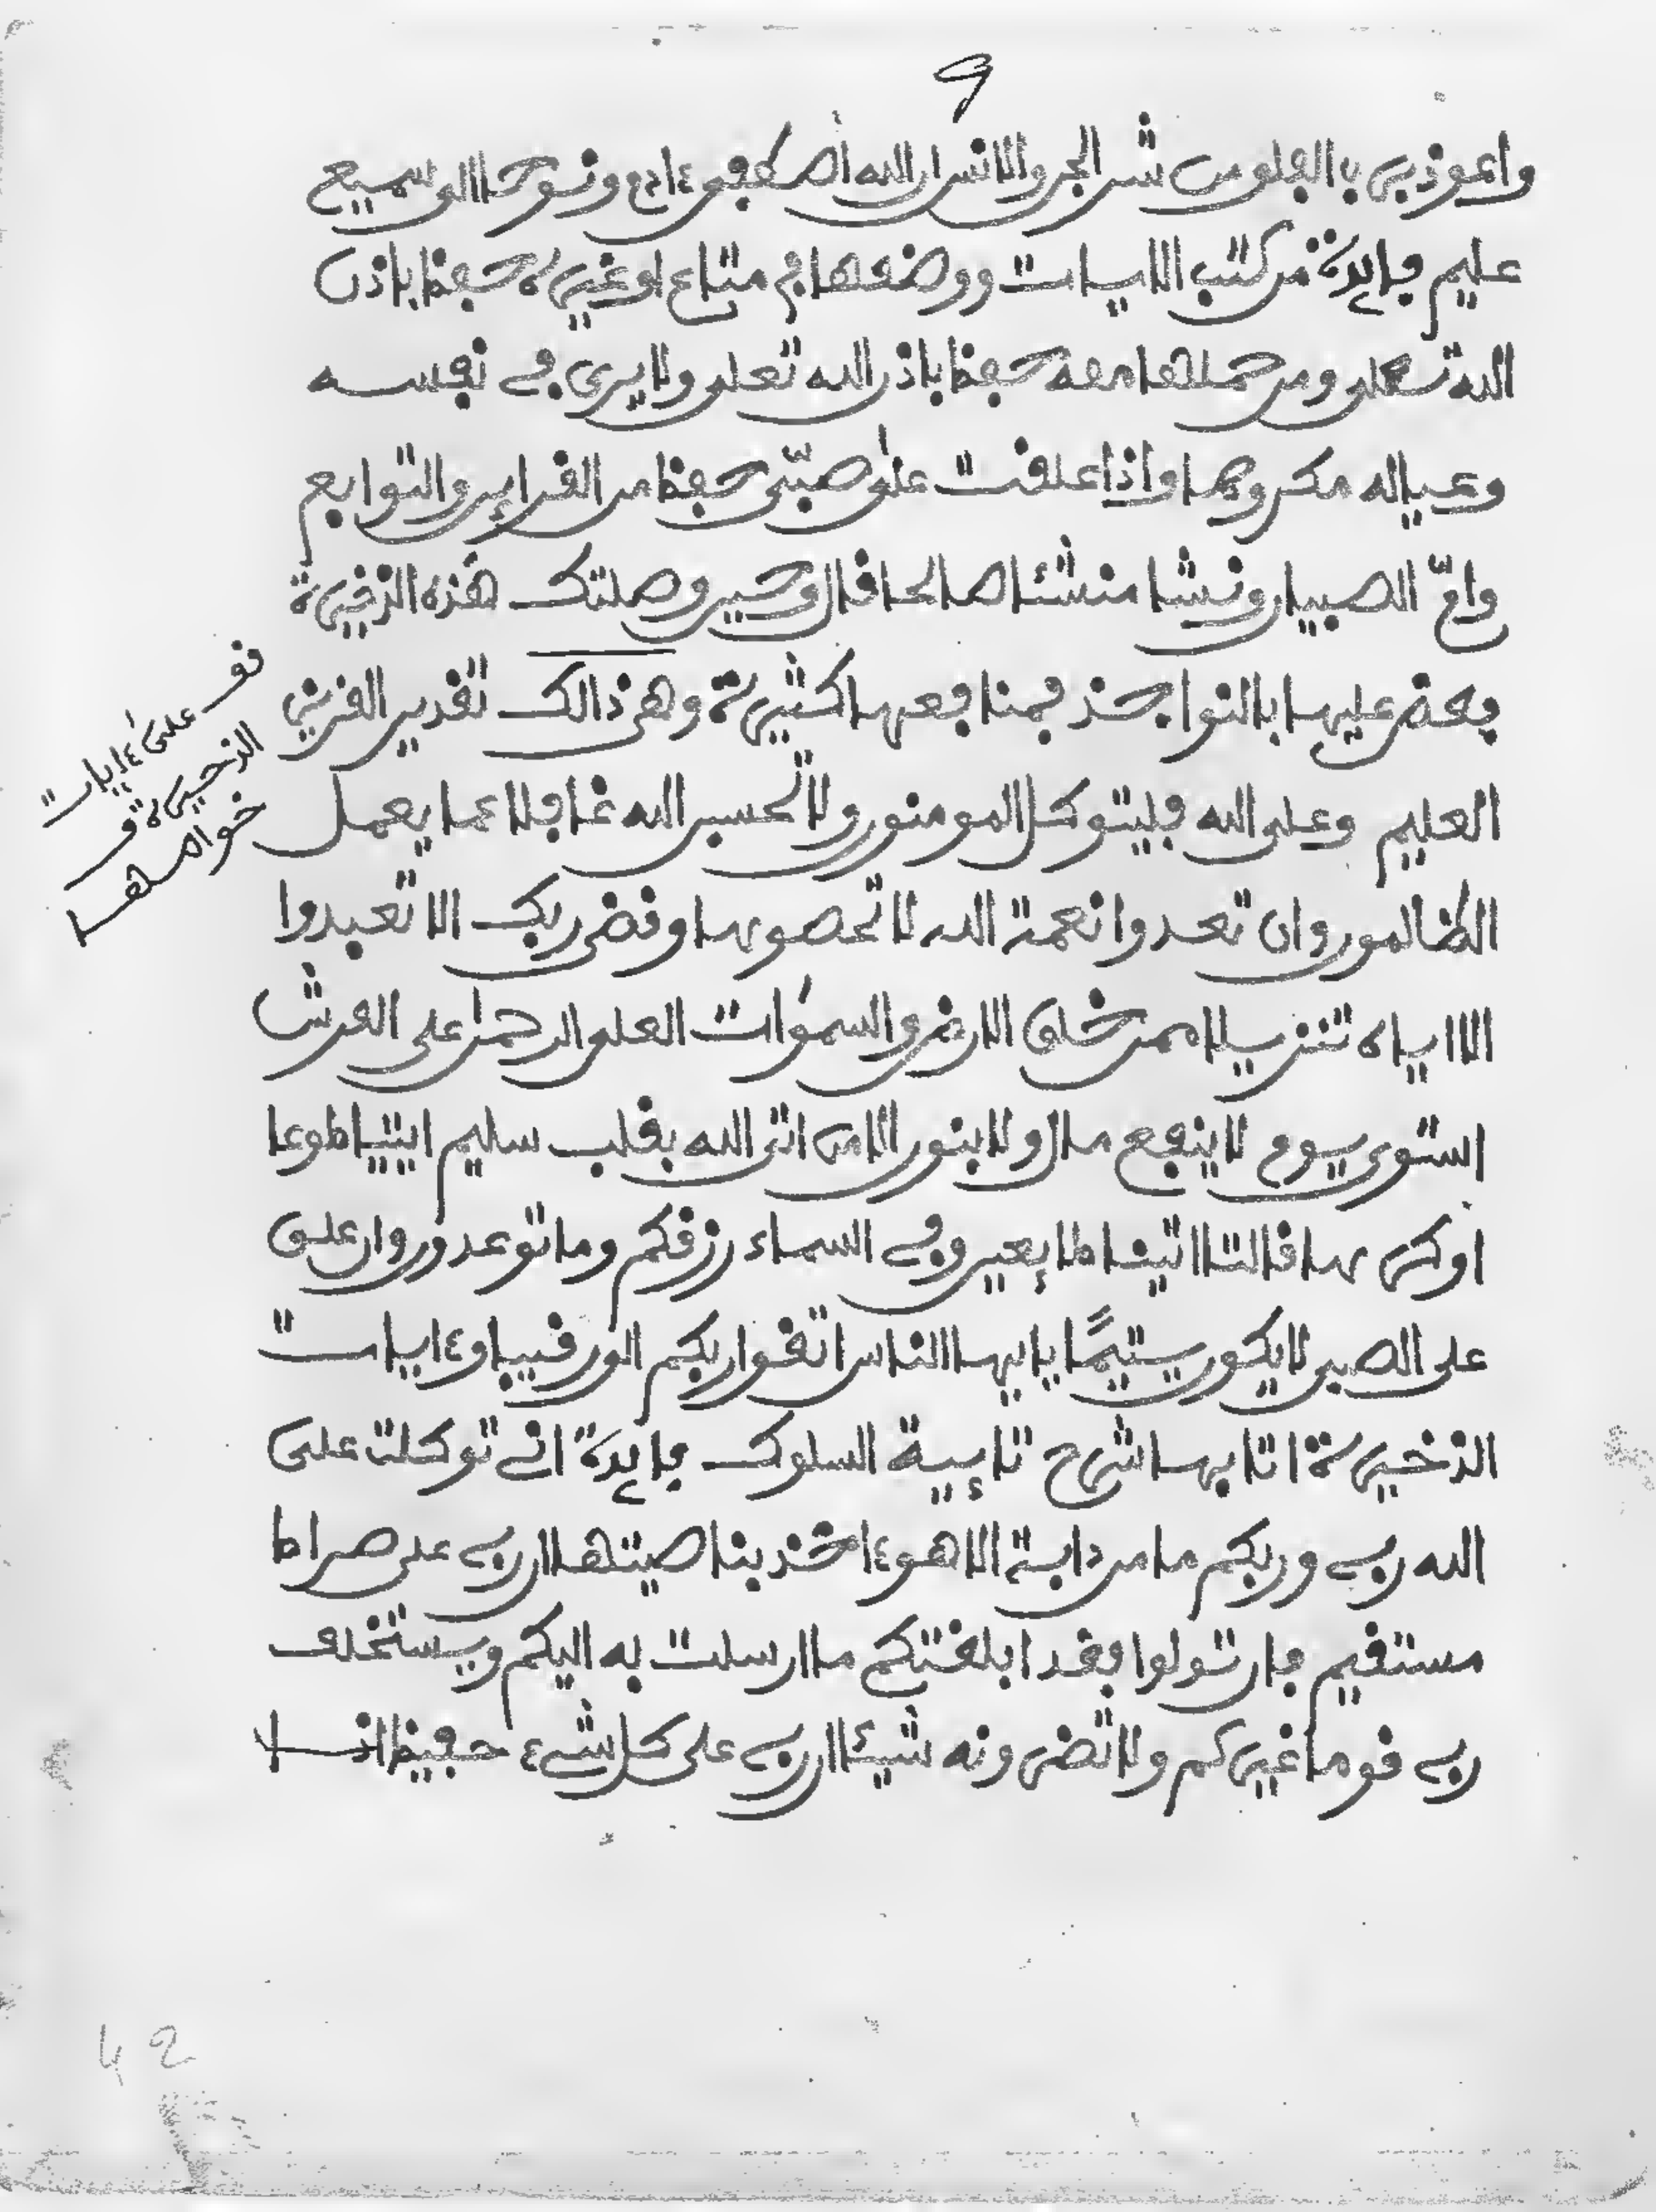 9
واعوذ برب الفلق من شر الجن والانس ان الله اصطفى ءادم ونوحا الى سميع
عليم فايدة من كتب الايات ووضعها في متاع او غيره حفظ باذن
الله تعلى ومن حملها معه حفظ باذن الله تعلى ولا يرى في نفسه
وعياله مكروها واذا علقت على صبي حفظ من القراين والتوابع
وام الصبيان ونشا منشئا صالحا قال وحين وصلتك هذه الذخيرة
فعض عليها بالنواجذ فمنافعها كثيرة وهي ذالك تقدير العزيز
العليم وعلى الله فليتوكل المومنون ولا تحسبن الله غافلا عما يعمل
الظالمون وان تعدوا نعمة الله لا تحصوها وقضى ربك الا تعبدوا
الا اياه تنزيلا ممن خلق الارض والسموات العلى الرحمن على العرش
استوى يوم لا ينفع مال ولا بنون الا من اتى الله بقلب سليم ايتيا طوعا
او كرها قالتا اتينا طايعين وفي السماء رزقكم وما توعدون وان علق
على الصبي لا يكون يتيما يايها الناس اتقوا ربكم الى رقيبا وءايات
الذخيرة اتا بها شرح تايية السلوك فايدة اني توكلت على
الله ربي وربكم ما من دابة الا هو ءاخذ بناصيتها ان ربي على صراط
مستقيم فان تولوا فقد ابلغتكم ما ارسلت به اليكم ويستخلف
ربي قوما غيركم ولا تضرونه شيئا ان ربي على كل شيء حفيظ اذا
قف على ءايات
الذخيرة و
خواصها
42